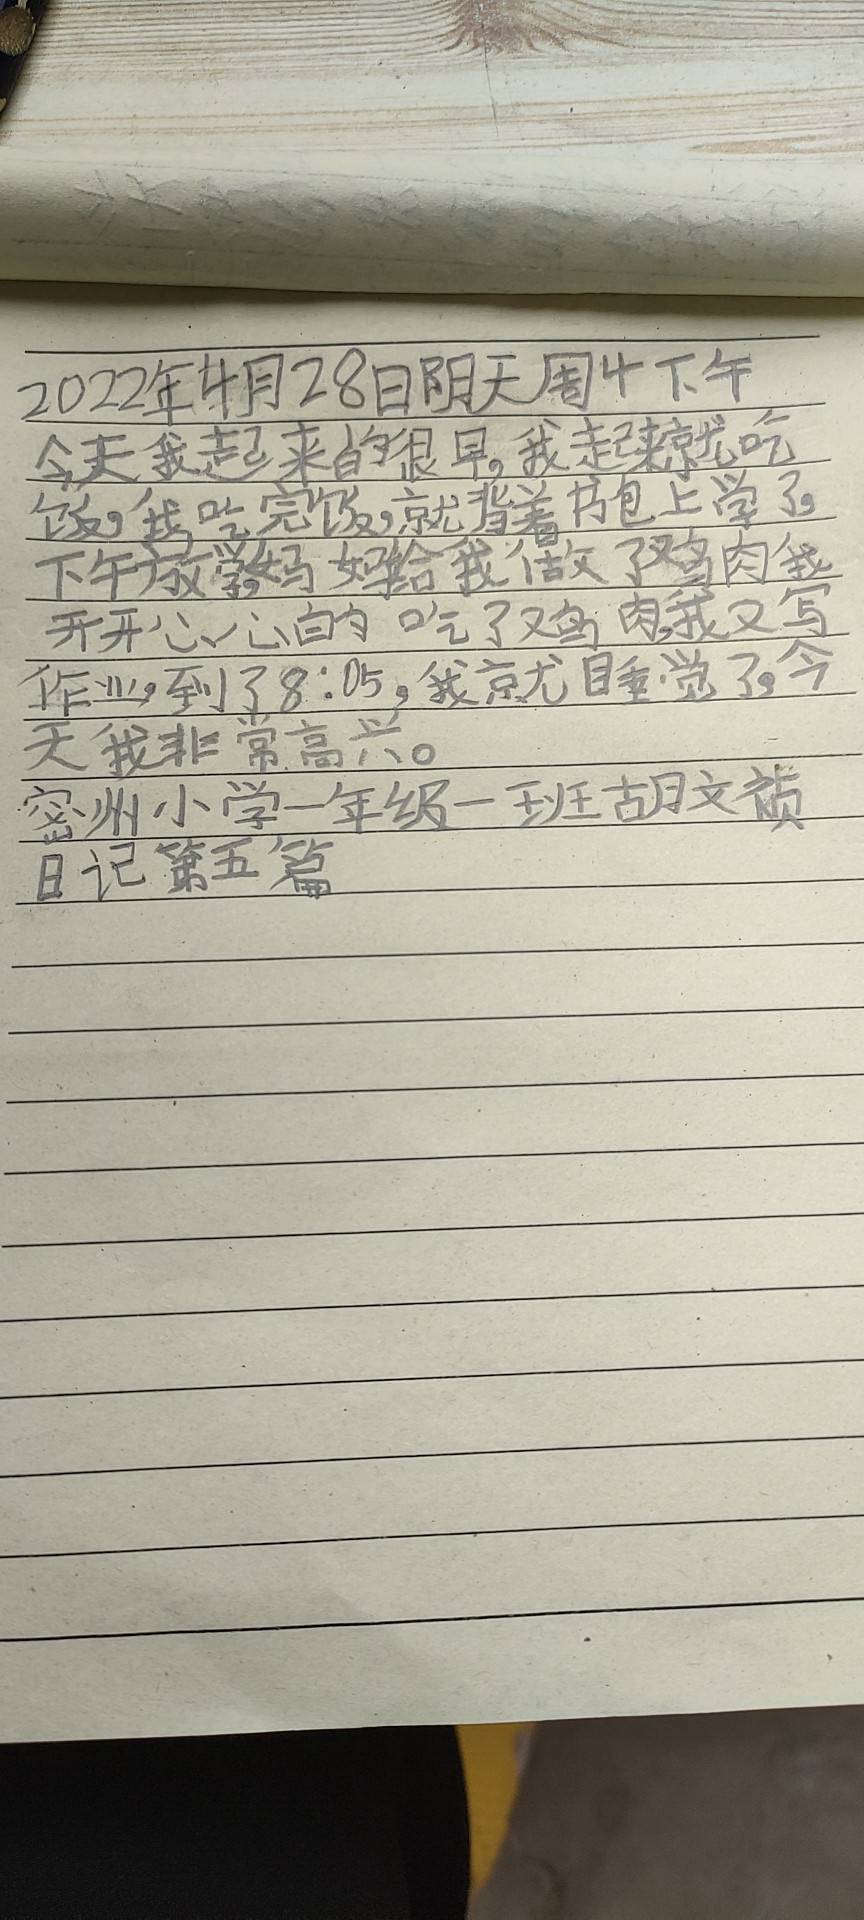 2022年4月28日阴天周4下午
今天我起来的很早,我起来就吃
饭,我吃完饭,就背着书包上学了。
下午放学,妈妈给我做了鸡肉我
开开心心的吃了鸡肉,我又写
作业,到了8:05,我就睡觉了。今
天我非常高兴。
密州小学一年级一班胡文祯
日记第五篇